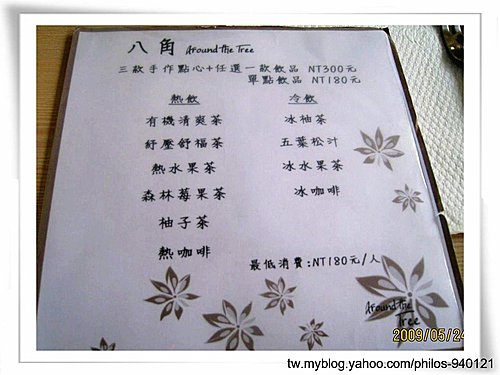 八角 Around the Tree
三款手作點心+任選一款飲品 NT300元
單點飲品 NT180元
熱飲
有機清爽茶
紓壓舒福茶
熱水果茶
森林莓果茶
柚子茶
熱咖啡
冷飲
冰柚茶
五葉松汁
冰水果茶
冰咖啡
最低消費:NT180元/人
Around the
Tree
2009/05/24
tw.myblog.yahoo.com/philos-940121